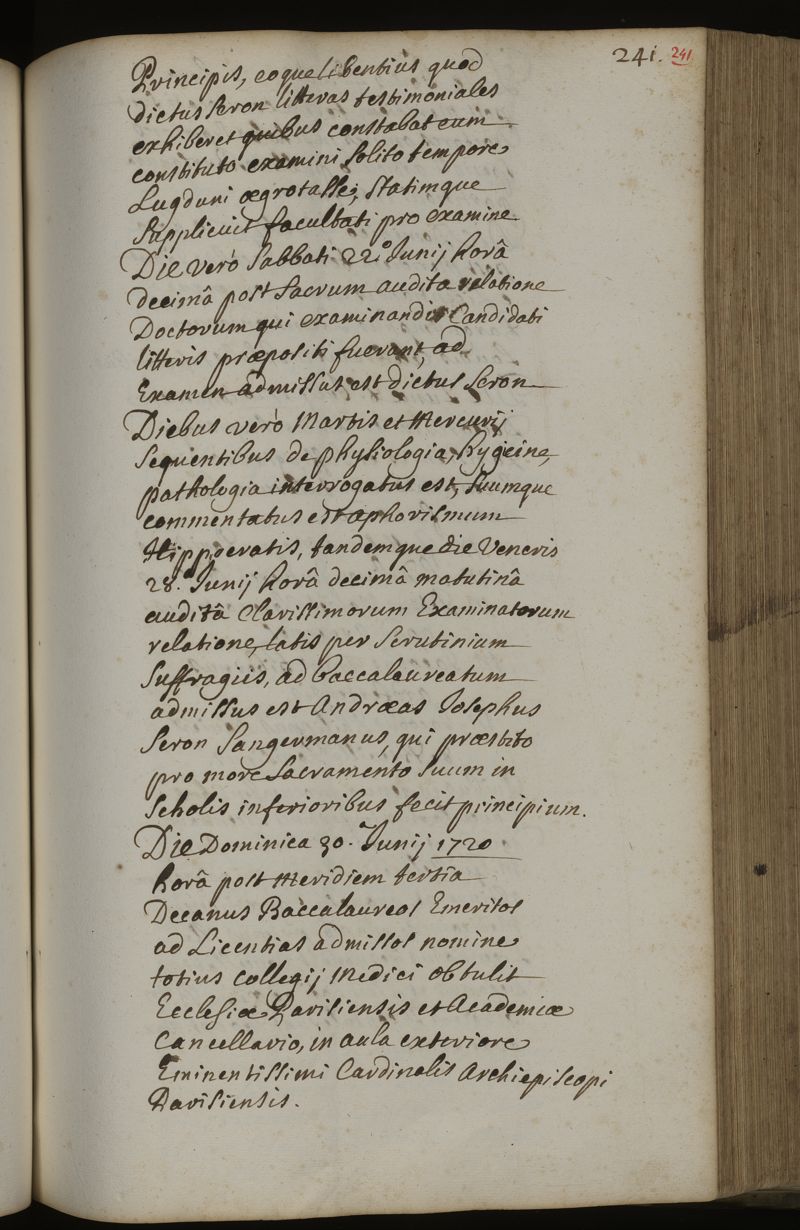 241. 241
Principis, eoque libentius quod
dictus Seron litteras testimoniales
exhiberet quibus constabat eum
constituto examini solito tempore
Lugduni ægrotasse, statimque
supplicuit facultati pro examine
Die verò Sabbati 22.º Junij horâ
decimâ post sacrum audita relatione
Doctorum qui examinandis Candidati
litteris præpositi fuerant ad
Examen admissus est dictus Seron
Diebus verò Martis et Mercurij
sequentibus de physiologia, hygeine,
pathologia interrogatus est, suumque
commentatus est aphorismum
Hippocratis, tandemque die Veneris
28.ª Junij horâ decimâ matutinâ
auditâ Clarissimorum Examinatorum
relatione, latis per Scrutinium
Suffragiis, ad baccalaureatum
admissus est Andræas Josephus
Seron Sangermanus, qui præstito
pro more Sacramento suum in
Scholis inferioribus fecit principium.
Die Dominica 30. Junij 1720
horâ post meridiem tertia
Decanus Baccalaureos Emeritos
ad Licentias admissos nomine
totius Collegij Medici obtulit
Ecclesiæ Parisiensis et Academiæ
Cancellario, in aula exteriore
Eminentissimi Cardinalis Archiepiscopi
Parisiensis.